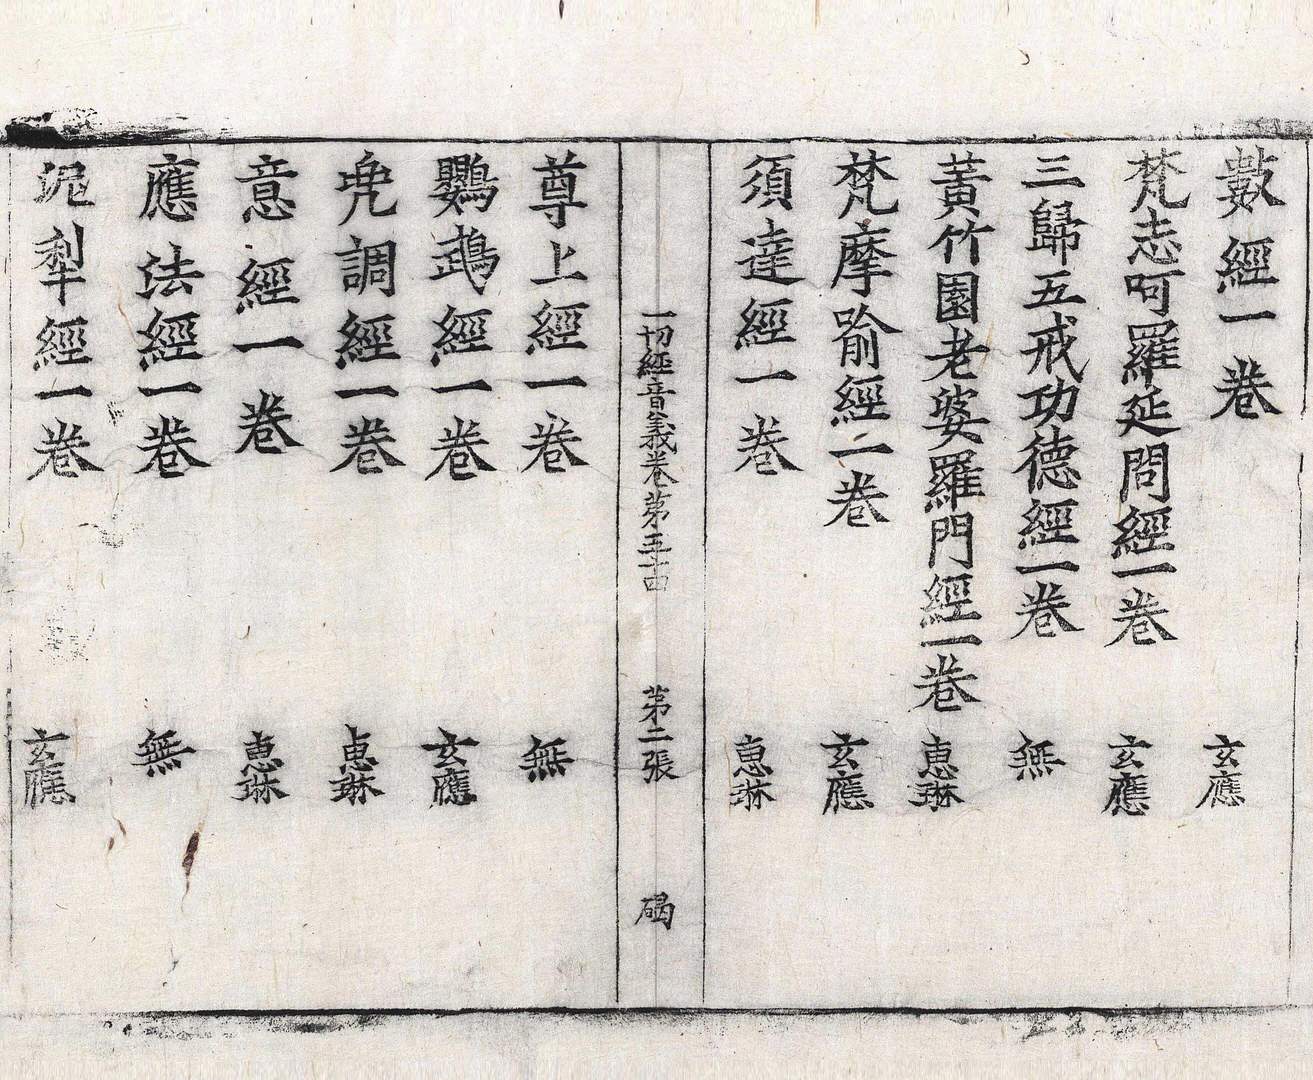 數經一卷 玄應
梵志呵羅延問經一卷 玄應
三歸五戒功德經一卷 無
黃竹園老婆羅門經一卷 惠琳
梵摩喻經二卷 玄應
須達經一卷 惠琳
一切經音義卷第五十四 第二張 碣
尊上經一卷 無
鸚鵡經一卷 玄應
兠調經一卷 惠琳
意經一卷 惠琳
應法經一卷 無
泥犁經一卷 玄應